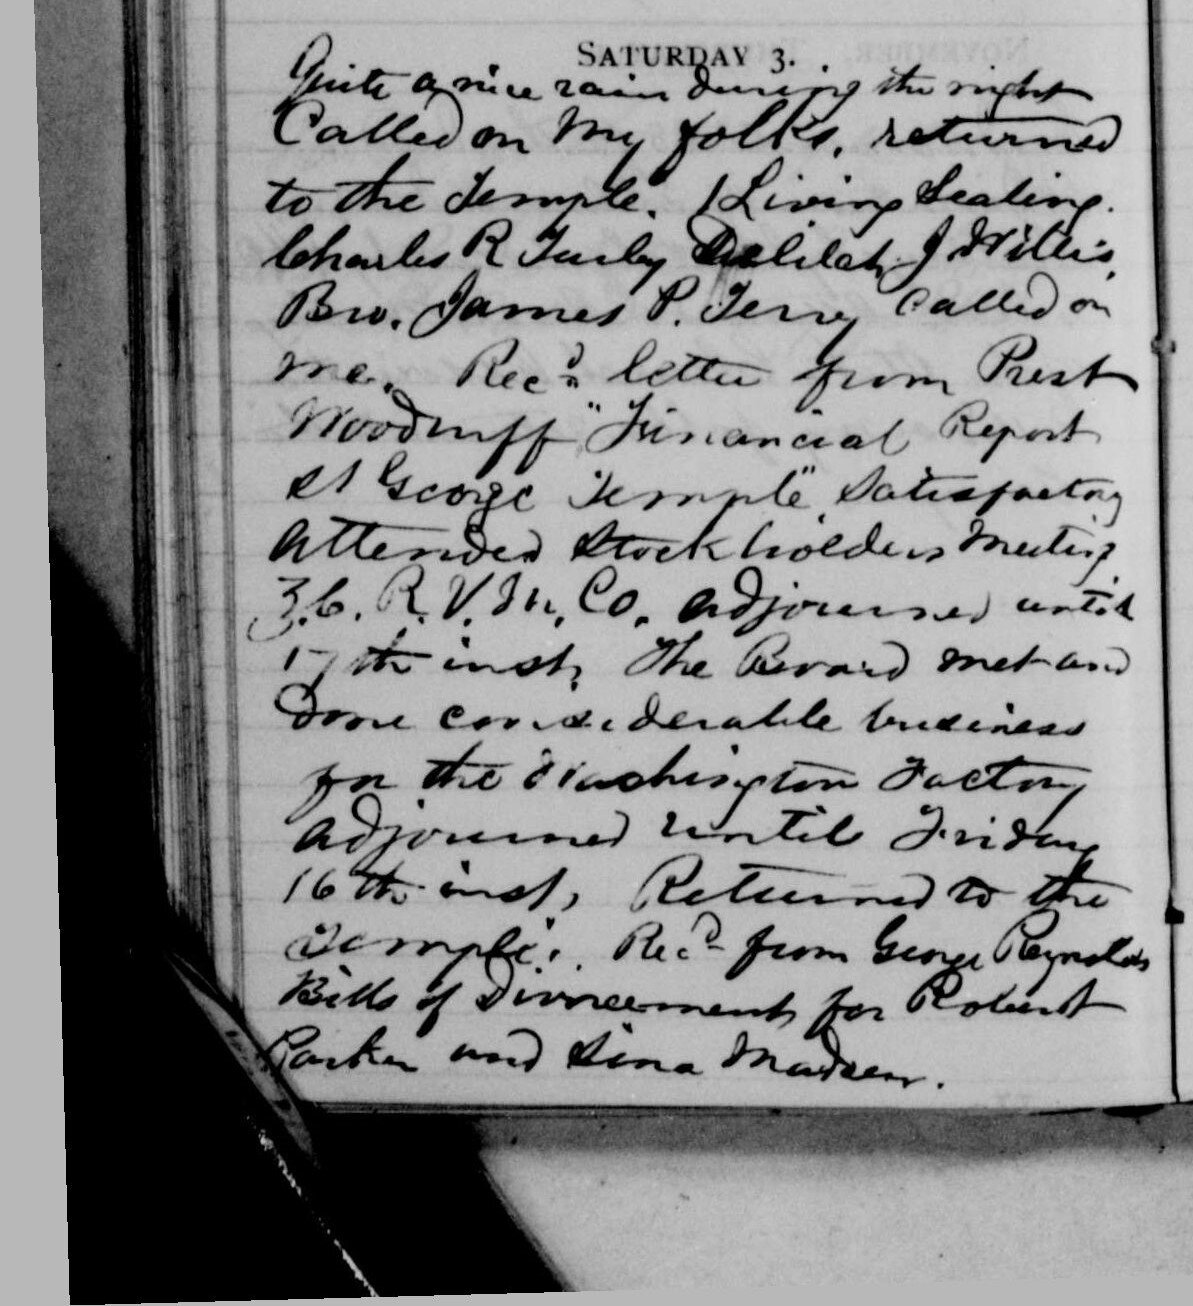 SATURDAY 3.
Quite a nice rain during the night
Called on my folks, returned
to the Temple. 1 Living Sealing.
Charles R Delilah J Willis,
Bro. James P. Terry called on
me. Rec'd letter from Prest
Woodruff "Financial Report
St George Temple" Satisfactory
Attended Stockholders Meeting
R. V. M. Co. adjourned until
17th inst, The Board met and
done considerable business
for the Washington Factory
adjourned until Friday
16th inst, Returned to the
Temple. Recd from George Reynolds
Bills of Divorcement for Robert
Parker and Sina Madsen.